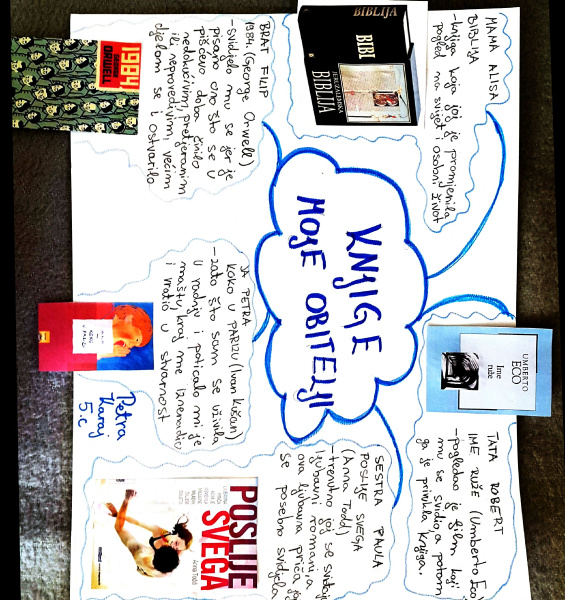 KNJIGE
MOJE OBITELJI
MAMA ALISA
BIBLIJA
-knjiga koja joj je promijenila
pogled na svijet i osobni život
BIBLIJA
BIBI
JERUZALEMSKA
BIBLIJA
BRAT FILIP
1984. (George Orwell)
-svidjelo mu se jer je
pisano ono što se u
piščevo doba činilo
nedokučivim, pretjeranim
ili neprovedivim, većim
djelom se i ostvarilo
1984
GEORGE
ORWELL
TATA ROBERT
IME RUŽE (Umberto Eco)
-pogledao je film koji
mu se svidio a potom
ga je privukla knjiga.
UMBERTO
ECO
Ime
ruže
JA PETRA
KOKO U PARIZU (Ivan Kušan)
-zato što sam se uživila
u radnju i poticalo mi je
maštu, kraj me iznenadio
i vratio u stvarnost
Petra
Haraj
5.c
SESTRA PAULA
POSLIJE SVEGA
(Anna Todd)
-trenutno joj se sviđaju
ljubavni romani, a
ova ljubavna priča joj
se posebno svidjela
POSLIJE
SVEGA
Anna Todd